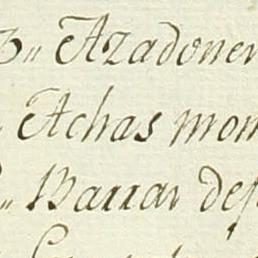 3,, Azadoner
Achas mon
Barrar des